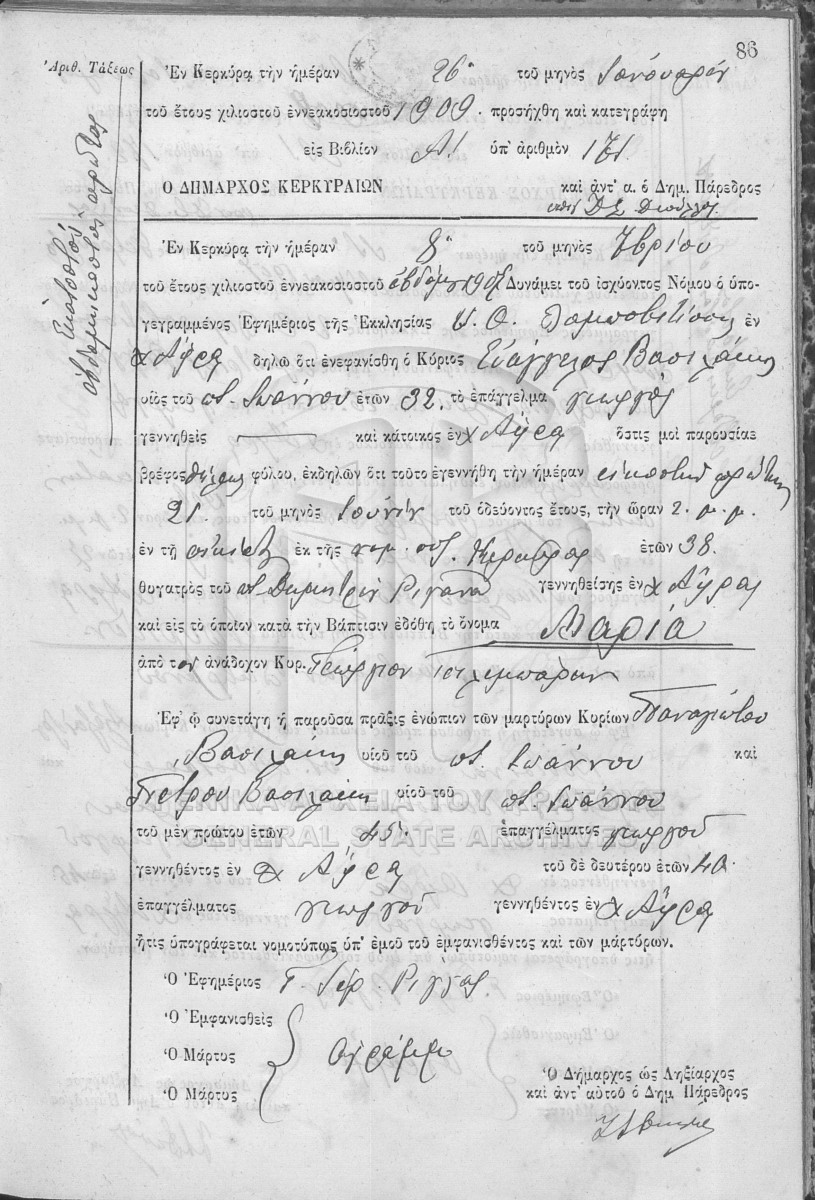 86
Ἀριθ. Τάξεως
Ἐν Κερκύρᾳ τὴν ἡμέραν 26 τοῦ μηνὸς
τοῦ ἔτους χιλιοστοῦ ἐννεακοσιοστοῦ 1909 προσήχθη καὶ κατεγράφη
εἰς Βιβλίον Α! ὑπ' ἀριθμὸν 171
Ο ΔΗΜΑΡΧΟΣ ΚΕΡΚΥΡΑΙΩΝ καὶ ἀντ' α. ὁ Δημ. Πάρεδρος
Ἐν Κερκύρᾳ τὴν ἡμέραν 8 τοῦ μηνὸς
τοῦ ἔτους χιλιοστοῦ ἐννεακοσιοστοῦ ἑβδόμου 1907 Δυνάμει τοῦ ἰσχύοντος Νόμου ὁ ὑπο-
γεγραμμένος Ἐφημέριος τῆς Ἐκκλησίας ἐν
χ Ἄφρα δηλῶ ὅτι ἐνεφανίσθη ὁ Κύριος Εὐάγγελος Βασιλάκης
υἱὸς τοῦ ποτ. Ἰωάννου ἐτῶν 32 τὸ ἐπάγγελμα γεωργὸς
γεννηθεὶς — καὶ κάτοικος ἐν χ Ἄφρα ὅστις μοὶ παρουσίασε
βρέφος θήλεος φύλου, ἐκδηλῶν ὅτι τοῦτο ἐγεννήθη τὴν ἡμέραν εἰκοστὴν πρώτην
21 τοῦ μηνὸς τοῦ ὁδεύοντος ἔτους, τὴν ὥραν 2 μ. μ.
ἐν τῇ οἰκίᾳ ἐκ τῆς ἐτῶν 38
θυγατρὸς τοῦ ποτ. Δημητρίου Ριγανᾶ γεννηθείσης ἐν χ Ἄφρα
καὶ εἰς τὸ ὁποῖον κατὰ τὴν Βάπτισιν ἐδόθη τὸ ὄνομα Μαρία
ἀπὸ τον ἀνάδοχον Κυρ. Γεώργιον
Ἐφ' ᾧ συνετάγη ἡ παροῦσα πρᾶξις ἐνώπιον τῶν μαρτύρων Κυρίων Παναγιώτου
Βασιλάκη υἱοῦ τοῦ ποτ. Ἰωάννου καὶ
Πέτρου Βασιλάκη υἱοῦ τοῦ ποτ. Ἰωάννου
ΓΕΝΙΚΑ ΑΡΧΕΙΑ ΤΟΥ ΚΡΑΤΟΥΣ
GENERAL STATE ARCHIVES
τοῦ μὲν πρώτου ἐτῶν 45 ἐπαγγέλματος γεωργοῦ
γεννηθέντος ἐν χ Ἄφρα τοῦ δὲ δευτέρου ἐτῶν 40
ἐπαγγέλματος γεωργοῦ γεννηθέντος ἐν χ Ἄφρα
ἥτις ὑπογράφεται νομοτύπως ὑπ' ἐμοῦ τοῦ ἐμφανισθέντος καὶ τῶν μαρτύρων.
Ὁ Ἐφημέριος
Ὁ Ἐμφανισθεὶς
Ὁ Μάρτυς ἀγράμματοι
Ὁ Μάρτυς
Ὁ Δήμαρχος ὡς Ληξίαρχος
καὶ ἀντ' αὐτοῦ ὁ Δημ Πάρεδρος